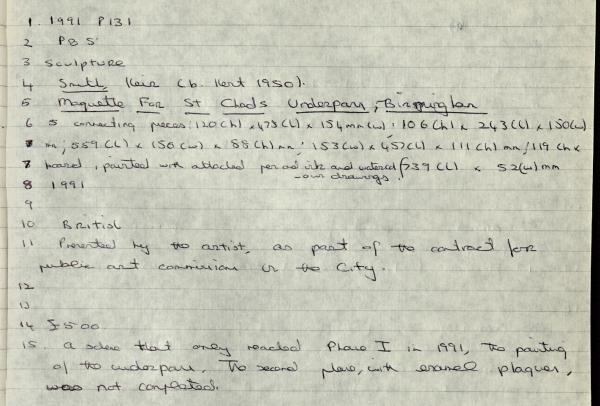 1. 1991 P131
2 PB S
3 Sculpture
4 Smith, Keir (b. Kent 1950).
5 Maquette For St Chads Underpass, Birmingham
6 5 connecting pieces: 120(h) x 475(L) x 154mm(w); 106(h) x 243(L) x 150(w)
mm; 559(L) x 150(w) x 88(h) mm; 153(w) x 457(L) x 111(h) mm; 119(h) x
7 board, painted with attached pen and ink and watercol 739(L) x 52(w) mm
-our drawings.
8 1991
9
10 British
11 Presented by the artist, as part of the contract for
public art commissions in the City.
12
13
14 £500
15. A scheme that only reached Phase I in 1991, the painting
of the underpass. The second phase, with enamel plaques,
was not completed.